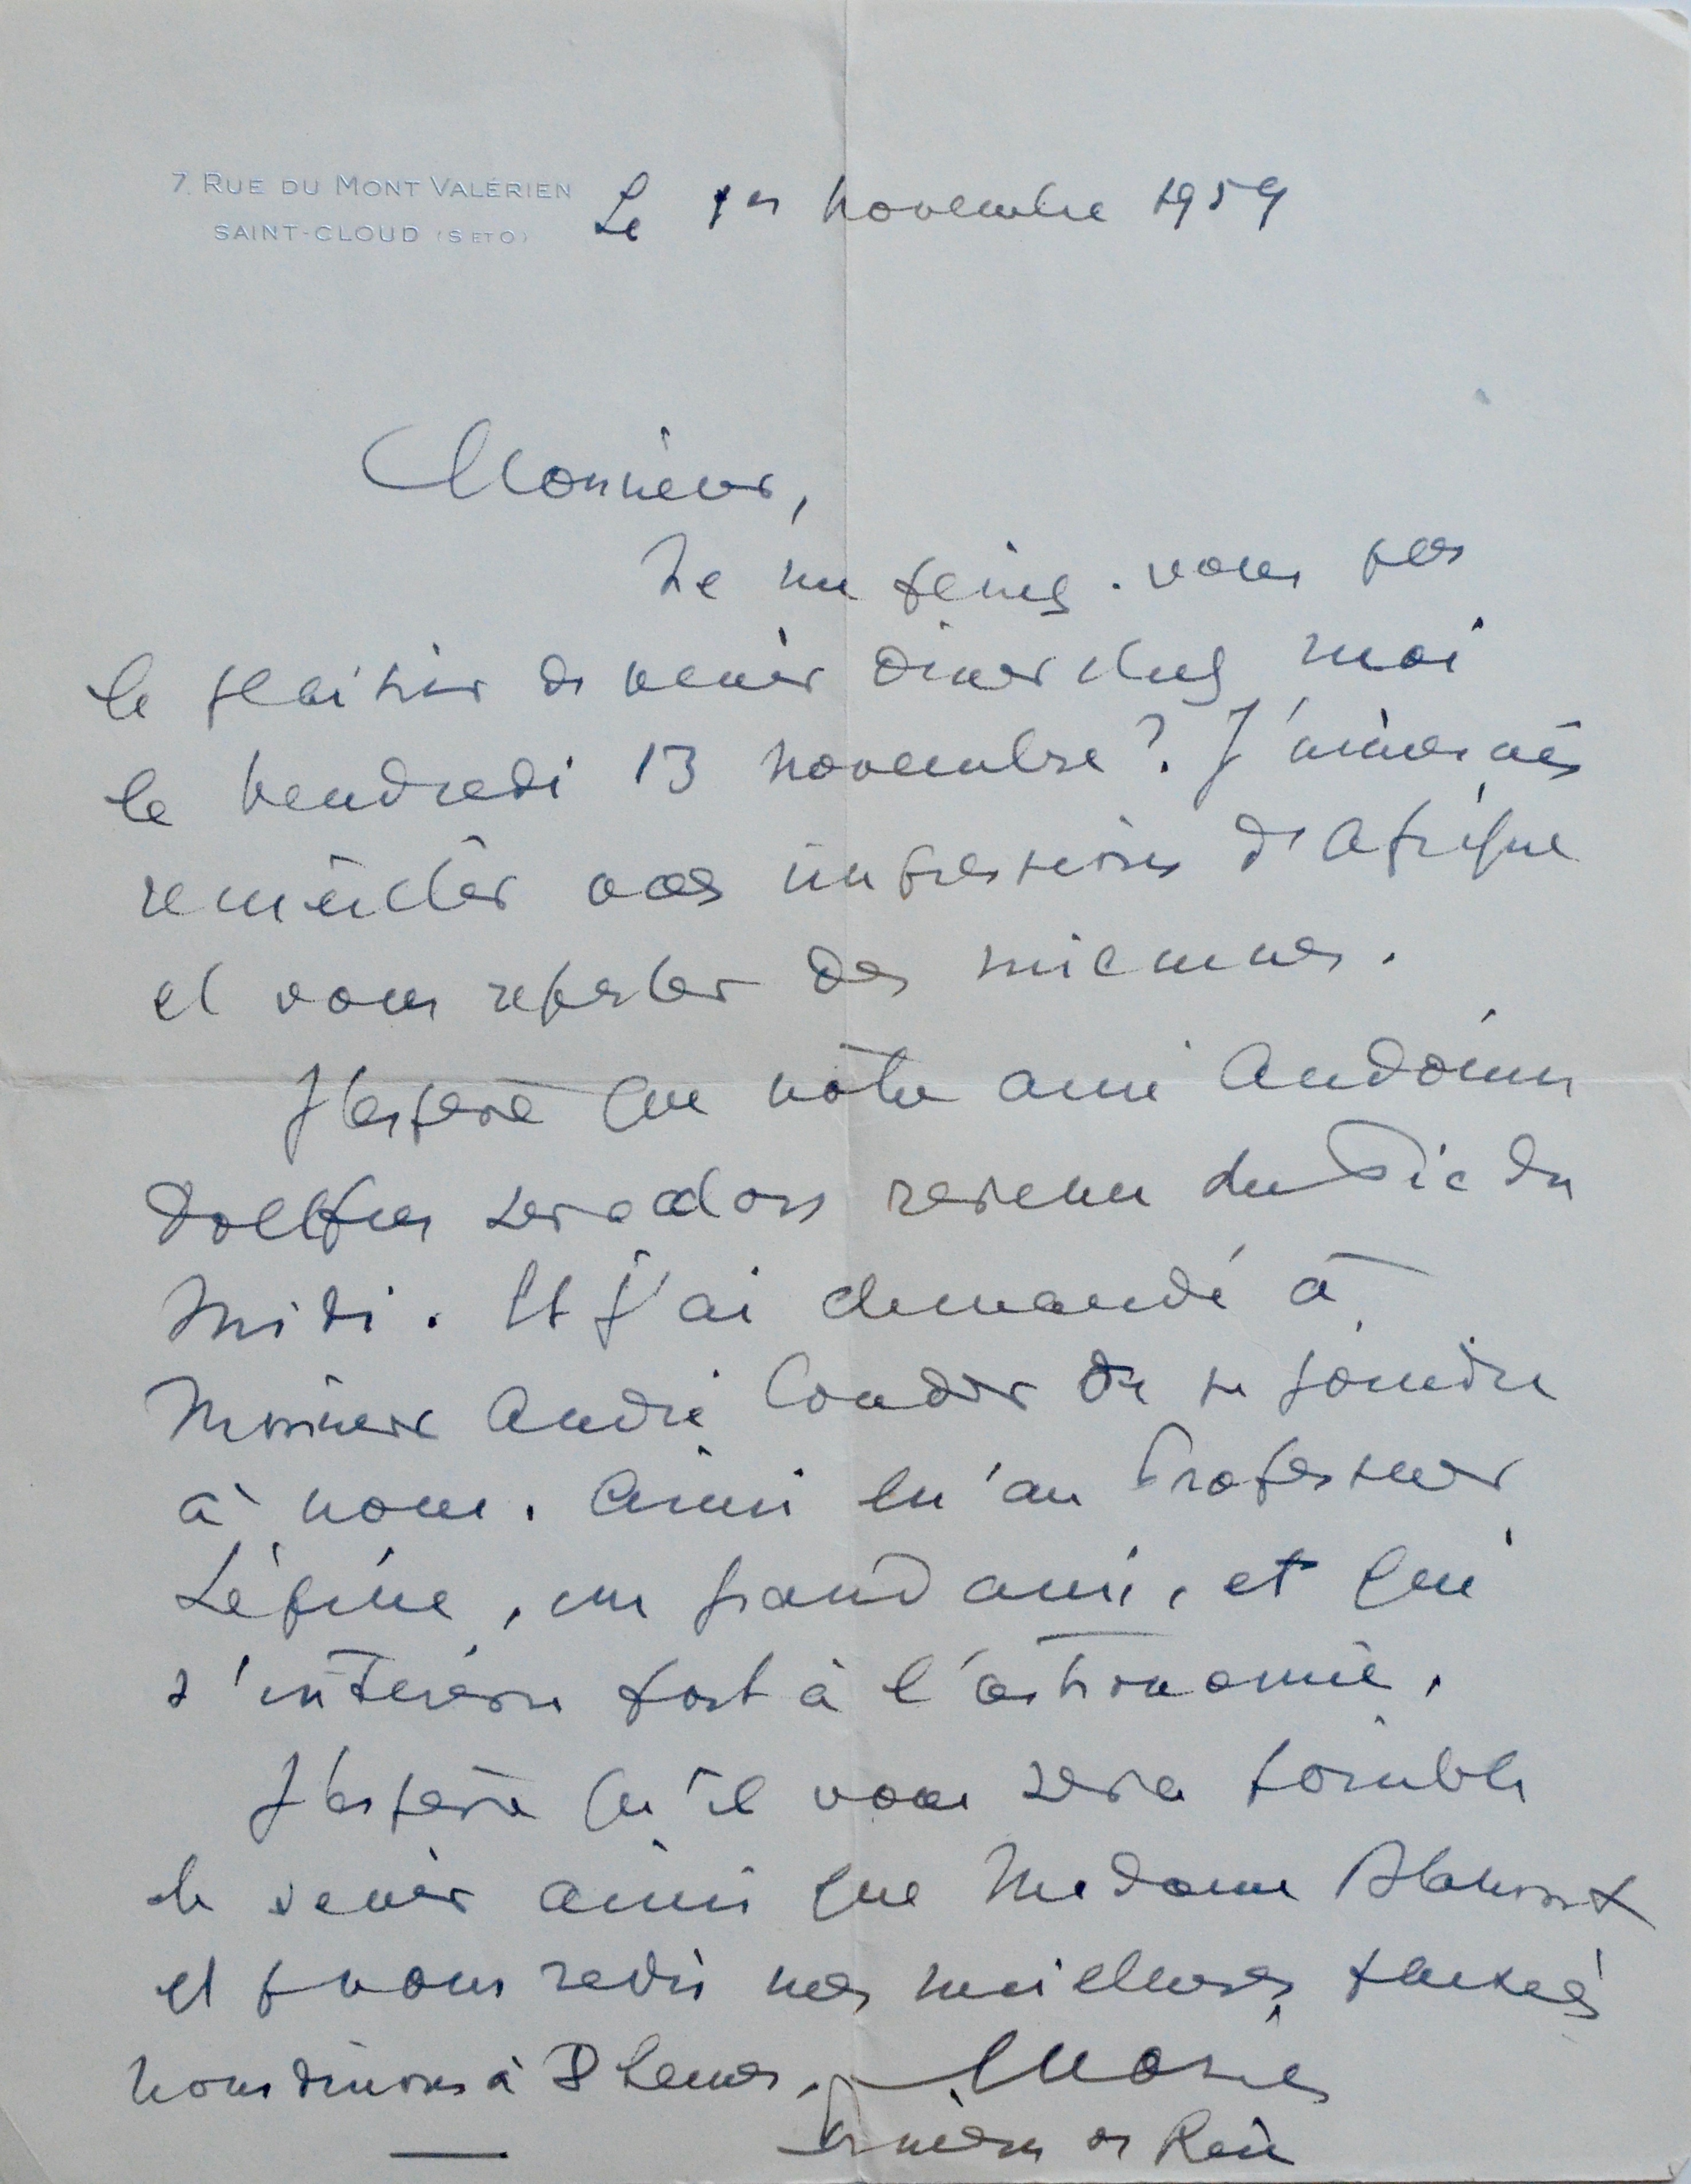 7. RUE DU MONT VALÉRIEN
SAINT-CLOUD (S ET O)
Le 1er novembre 1959
Monsieur,
Ne me feriez-vous pas
le plaisir de venir diner chez moi
le vendredi 13 novembre ? J'aimerais
écouter vos impressions d'Afrique
et vous reparler des miennes.
J'espère que notre ami Audouin
Dollfus sera alors revenu du Pic du
Midi. Et j'ai demandé à
Monsieur André Couder de se joindre
à nous. Ainsi qu'au Professeur
Lépine, un grand ami, et qui
s'intéresse fort à l'astronomie.
J'espère qu'il vous sera possible
de venir ainsi que Madame
et je vous redis mes meilleures pensées
nous dinons à 8 heures. Marie
Princesse de Grèce